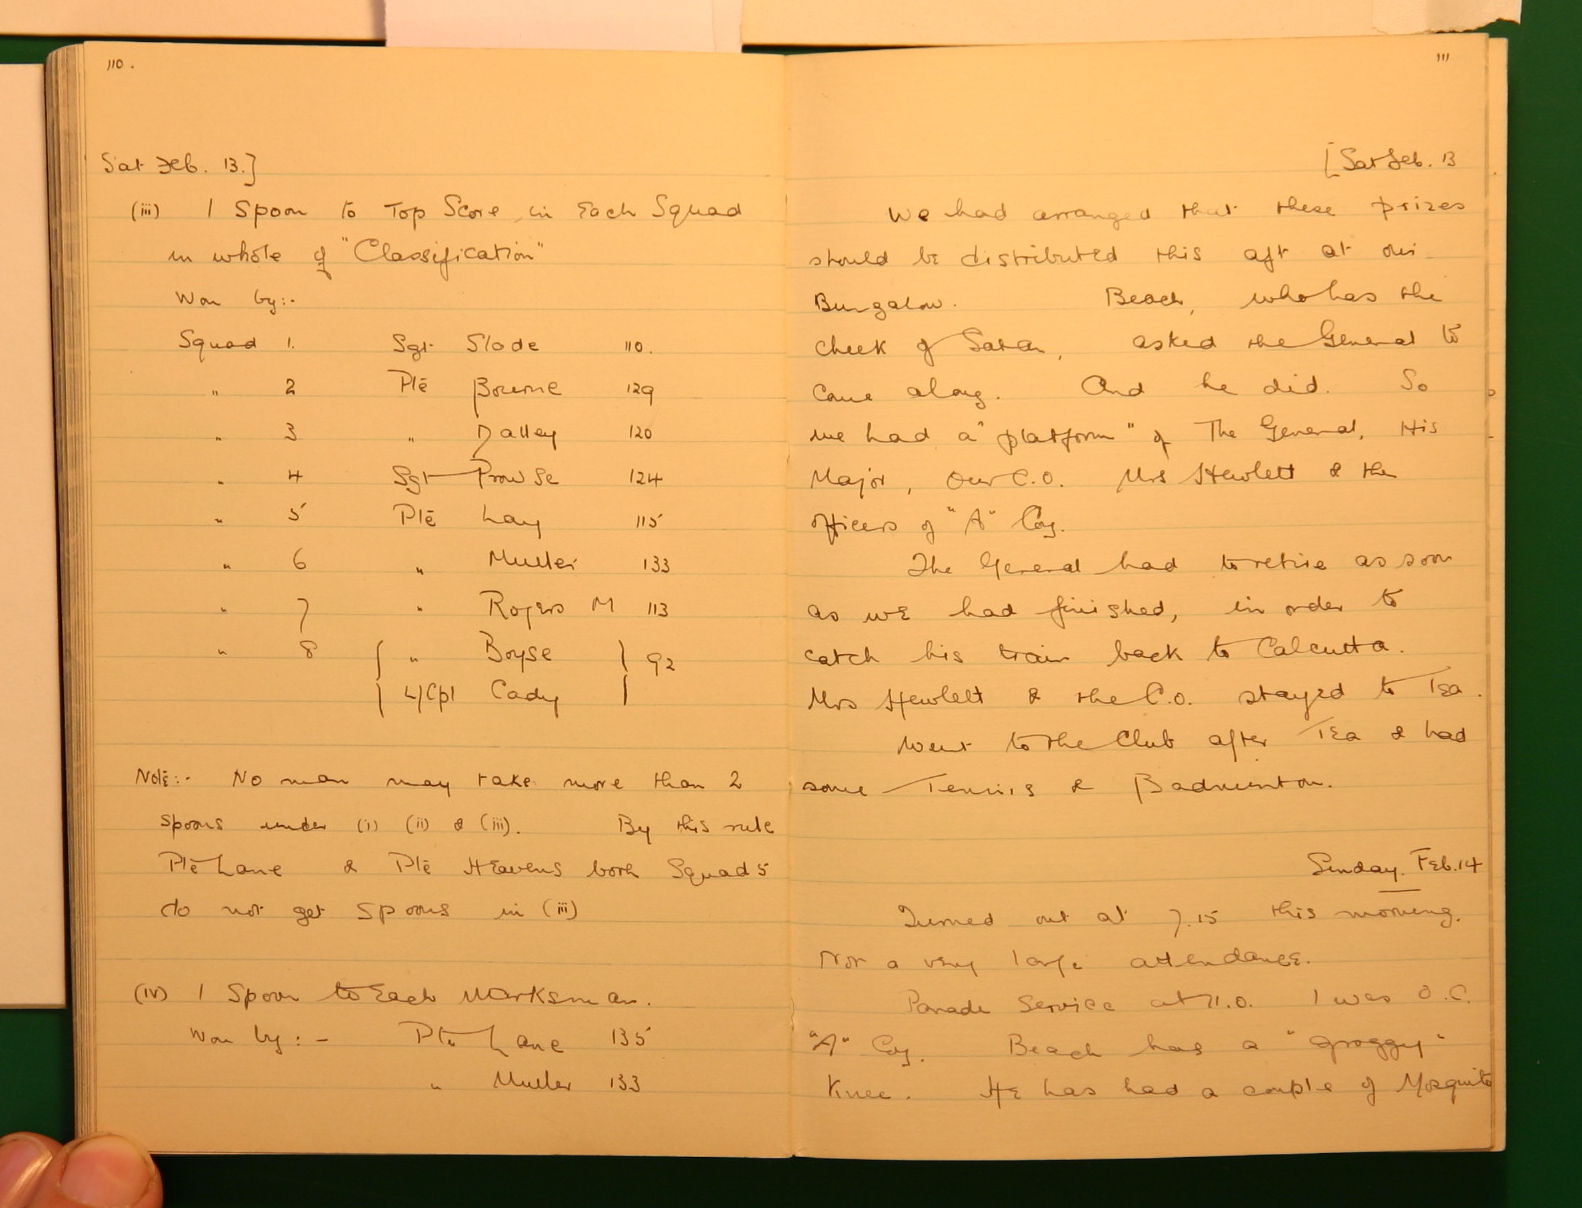 110.
Sat Feb. 13.]
(iii) 1 Spoon to Top Score in Each Squad
in whole of "Classification"
Won by:-
Squad 1. Sgt Slade 110.
" 2 Pte Bourne 129
" 3 " Dalley 120
" 4 Sgt Prowse 124
" 5 Pte Lay 115
" 6 " Muller 133
" 7 " Rogers M 113
" 8 { " Boyse } 92
L/Cpl Cady
Note:- No man may take more than 2
spoons under (i) (ii) & (iii). By this rule
Pte Lane & Pte Heavens both Squad 5
do not get spoons in (iii)
(iv) 1 Spoon to Each Marksman.
Won by:- Pte Lane 135
" Muller 133
111
[Sat Feb. 13
We had arranged that these prizes
should be distributed this aft at our
Bungalow. Beach, who has the
cheek of Satan, asked the General to
come along. And he did. So
we had a "platform" of The General, His
Major, Our C.O. Mrs Hewlett & the
officers of "A" Coy.
The General had to retire as soon
as we had finished, in order to
catch his train back to Calcutta.
Mrs Hewlett & the C.O. stayed to Tea.
Went to the Club after Tea & had
some Tennis & Badminton.
Sunday. Feb. 14
Turned out at 7.15 this morning.
Not a very large attendance.
Parade Service at 11.0. I was O.C.
"A" Coy. Beach has a "groggy"
Knee. He has had a couple of Mosquito